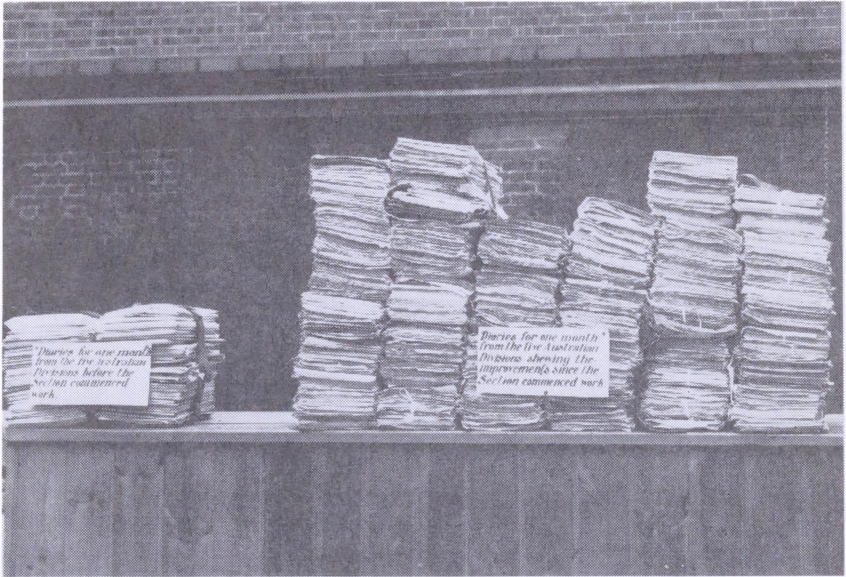 "Diaries for one month
from the five Australian
Divisions before the
Section commenced
work
Diaries for one month"
from the five Australian
Divisions shewing the
improvements since the
Section commenced work